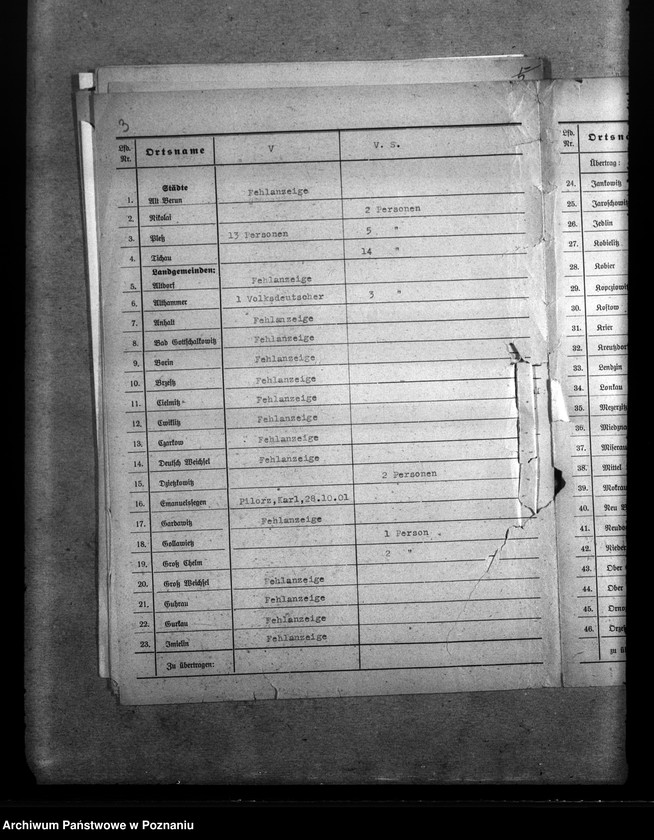 5
3
Lfd. Nr. Ortsname V V. S.
Städte
1. Alt Berun Fehlanzeige
2. Nikolai 2 Personen
3. Pleß 13 Personen 5 "
4. Tichau 14 "
Landgemeinden:
5. Altdorf Fehlanzeige
6. Althammer 1 Volksdeutscher 3 "
7. Anhalt Fehlanzeige
8. Bad Gottschalkowitz Fehlanzeige
9. Borin Fehlanzeige
10. Brzestz Fehlanzeige
11. Cielmitz Fehlanzeige
12. Cwiklitz Fehlanzeige
13. Czarkow Fehlanzeige
14. Deutsch Weichsel Fehlanzeige
15. Dzietzkowitz 2 Personen
16. Emanuelssegen Pilorz,Karl,28.10.01
17. Gardawitz Fehlanzeige
18. Gollawietz 1 Person
19. Groß Chelm 2 "
20. Groß Weichsel Fehlanzeige
21. Guhrau Fehlanzeige
22. Gurkau Fehlanzeige
23. Imielin Fehlanzeige
Zu übertragen:
Lfd. Nr. Ortsna
Übertrag:
24. Jankowitz
25. Jaroschowitz
26. Jedlin
27. Kobielitz
28. Kobier
29. Kopcziowitz
30. Kostow
31. Krier
32. Kreutzdor
33. Lendzin
34. Lonkau
35. Mezerzitz
36. Miedzna
37. Miserau
38. Mittel
39. Mokrau
40. Neu B
41. Neudo
42. Nieder
43. Ober
44. Ober
45. Orno
46. Orze
zu üb
Archiwum Państwowe w Poznaniu